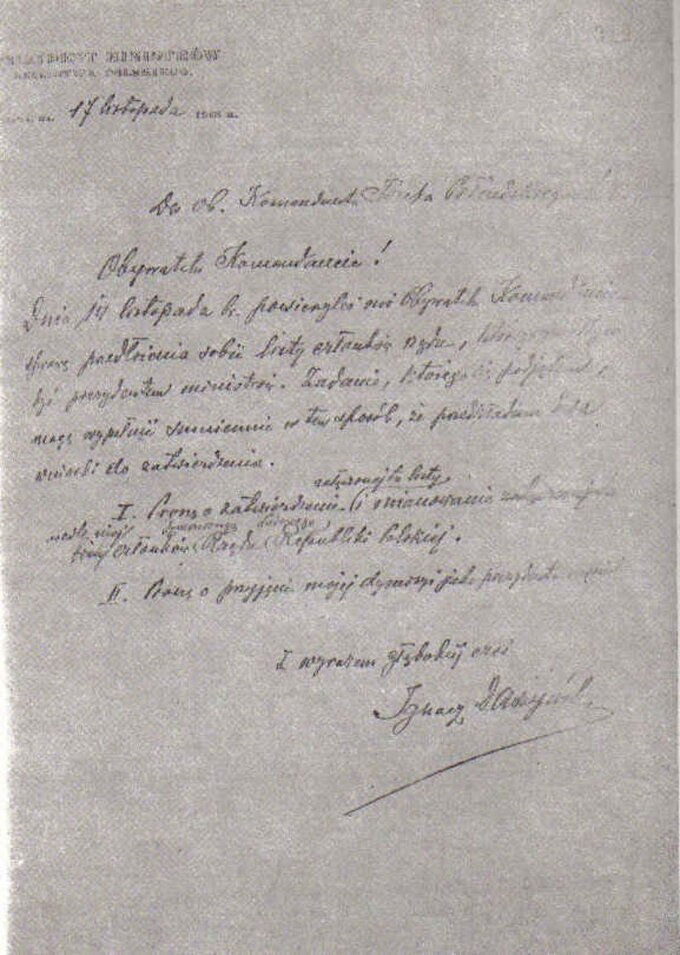 PREZYDENT MINISTRÓW
17 listopada
Do ob. Komendanta Józefa Piłsudskiego!
Obywatelu Komendancie!
Dnia 14 listopada br. powierzyłeś mi Obywatelu Komendancie
sprawę przedłożenia sobie listy członków rządu,
być prezydentem ministrów. Zadanie, którego się podjąłem,
mogę wypełnić sumiennie w ten sposób, że przedkładam dwa
wnioski do zatwierdzenia.
załączonej tu listy
I. Proszę o zatwierdzenie i mianowanie
członków Rządu Republiki Polskiej.
II. Proszę o przyjęcie mojej dymisji jako prezydenta
Z wyrazem głębokiej czci
Ignacy Daszyński